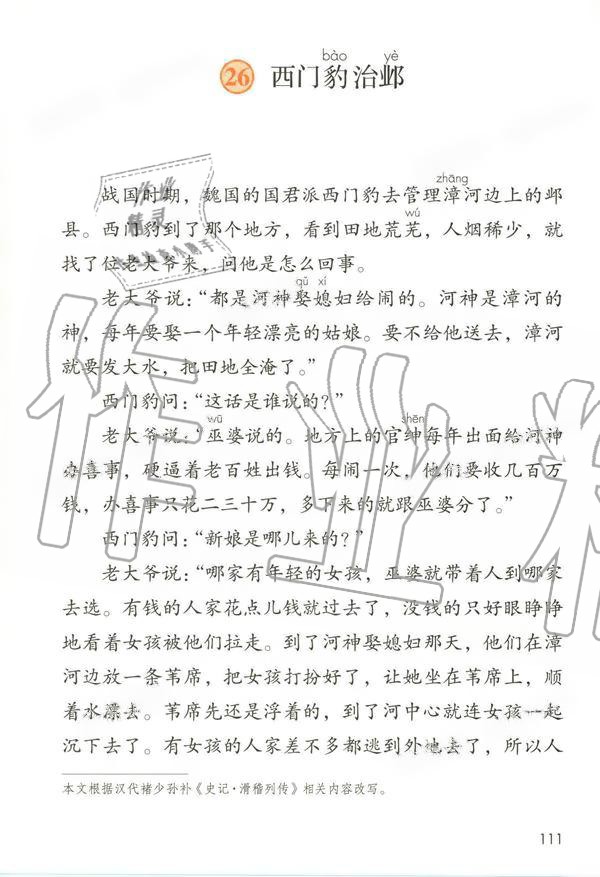 bào yè
26 西门豹治邺
zhāng
战国时期，魏国的国君派西门豹去管理漳河边上的邺
wú
县。西门豹到了那个地方，看到田地荒芜，人烟稀少，就
找了位老大爷来，问他是怎么回事。
qǔ xí
老大爷说：“都是河神娶媳妇给闹的。河神是漳河的
神，每年要娶一个年轻漂亮的姑娘。要不给他送去，漳河
就要发大水，把田地全淹了。”
西门豹问：“这话是谁说的？”
wū shēn
老大爷说：“巫婆说的。地方上的官绅每年出面给河神
办喜事，硬逼着老百姓出钱。每闹一次，他们要收几百万
钱，办喜事只花二三十万，多下来的就跟巫婆分了。”
西门豹问：“新娘是哪儿来的？”
老大爷说：“哪家有年轻的女孩，巫婆就带着人到哪家
去选。有钱的人家花点儿钱就过去了，没钱的只好眼睁睁
地看着女孩被他们拉走。到了河神娶媳妇那天，他们在漳
河边放一条苇席，把女孩打扮好了，让她坐在苇席上，顺
着水漂去。苇席先还是浮着的，到了河中心就连女孩一起
沉下去了。有女孩的人家差不多都逃到外地去了，所以人
本文根据汉代褚少孙补《史记·滑稽列传》相关内容改写。
111
作业精
作业
精灵